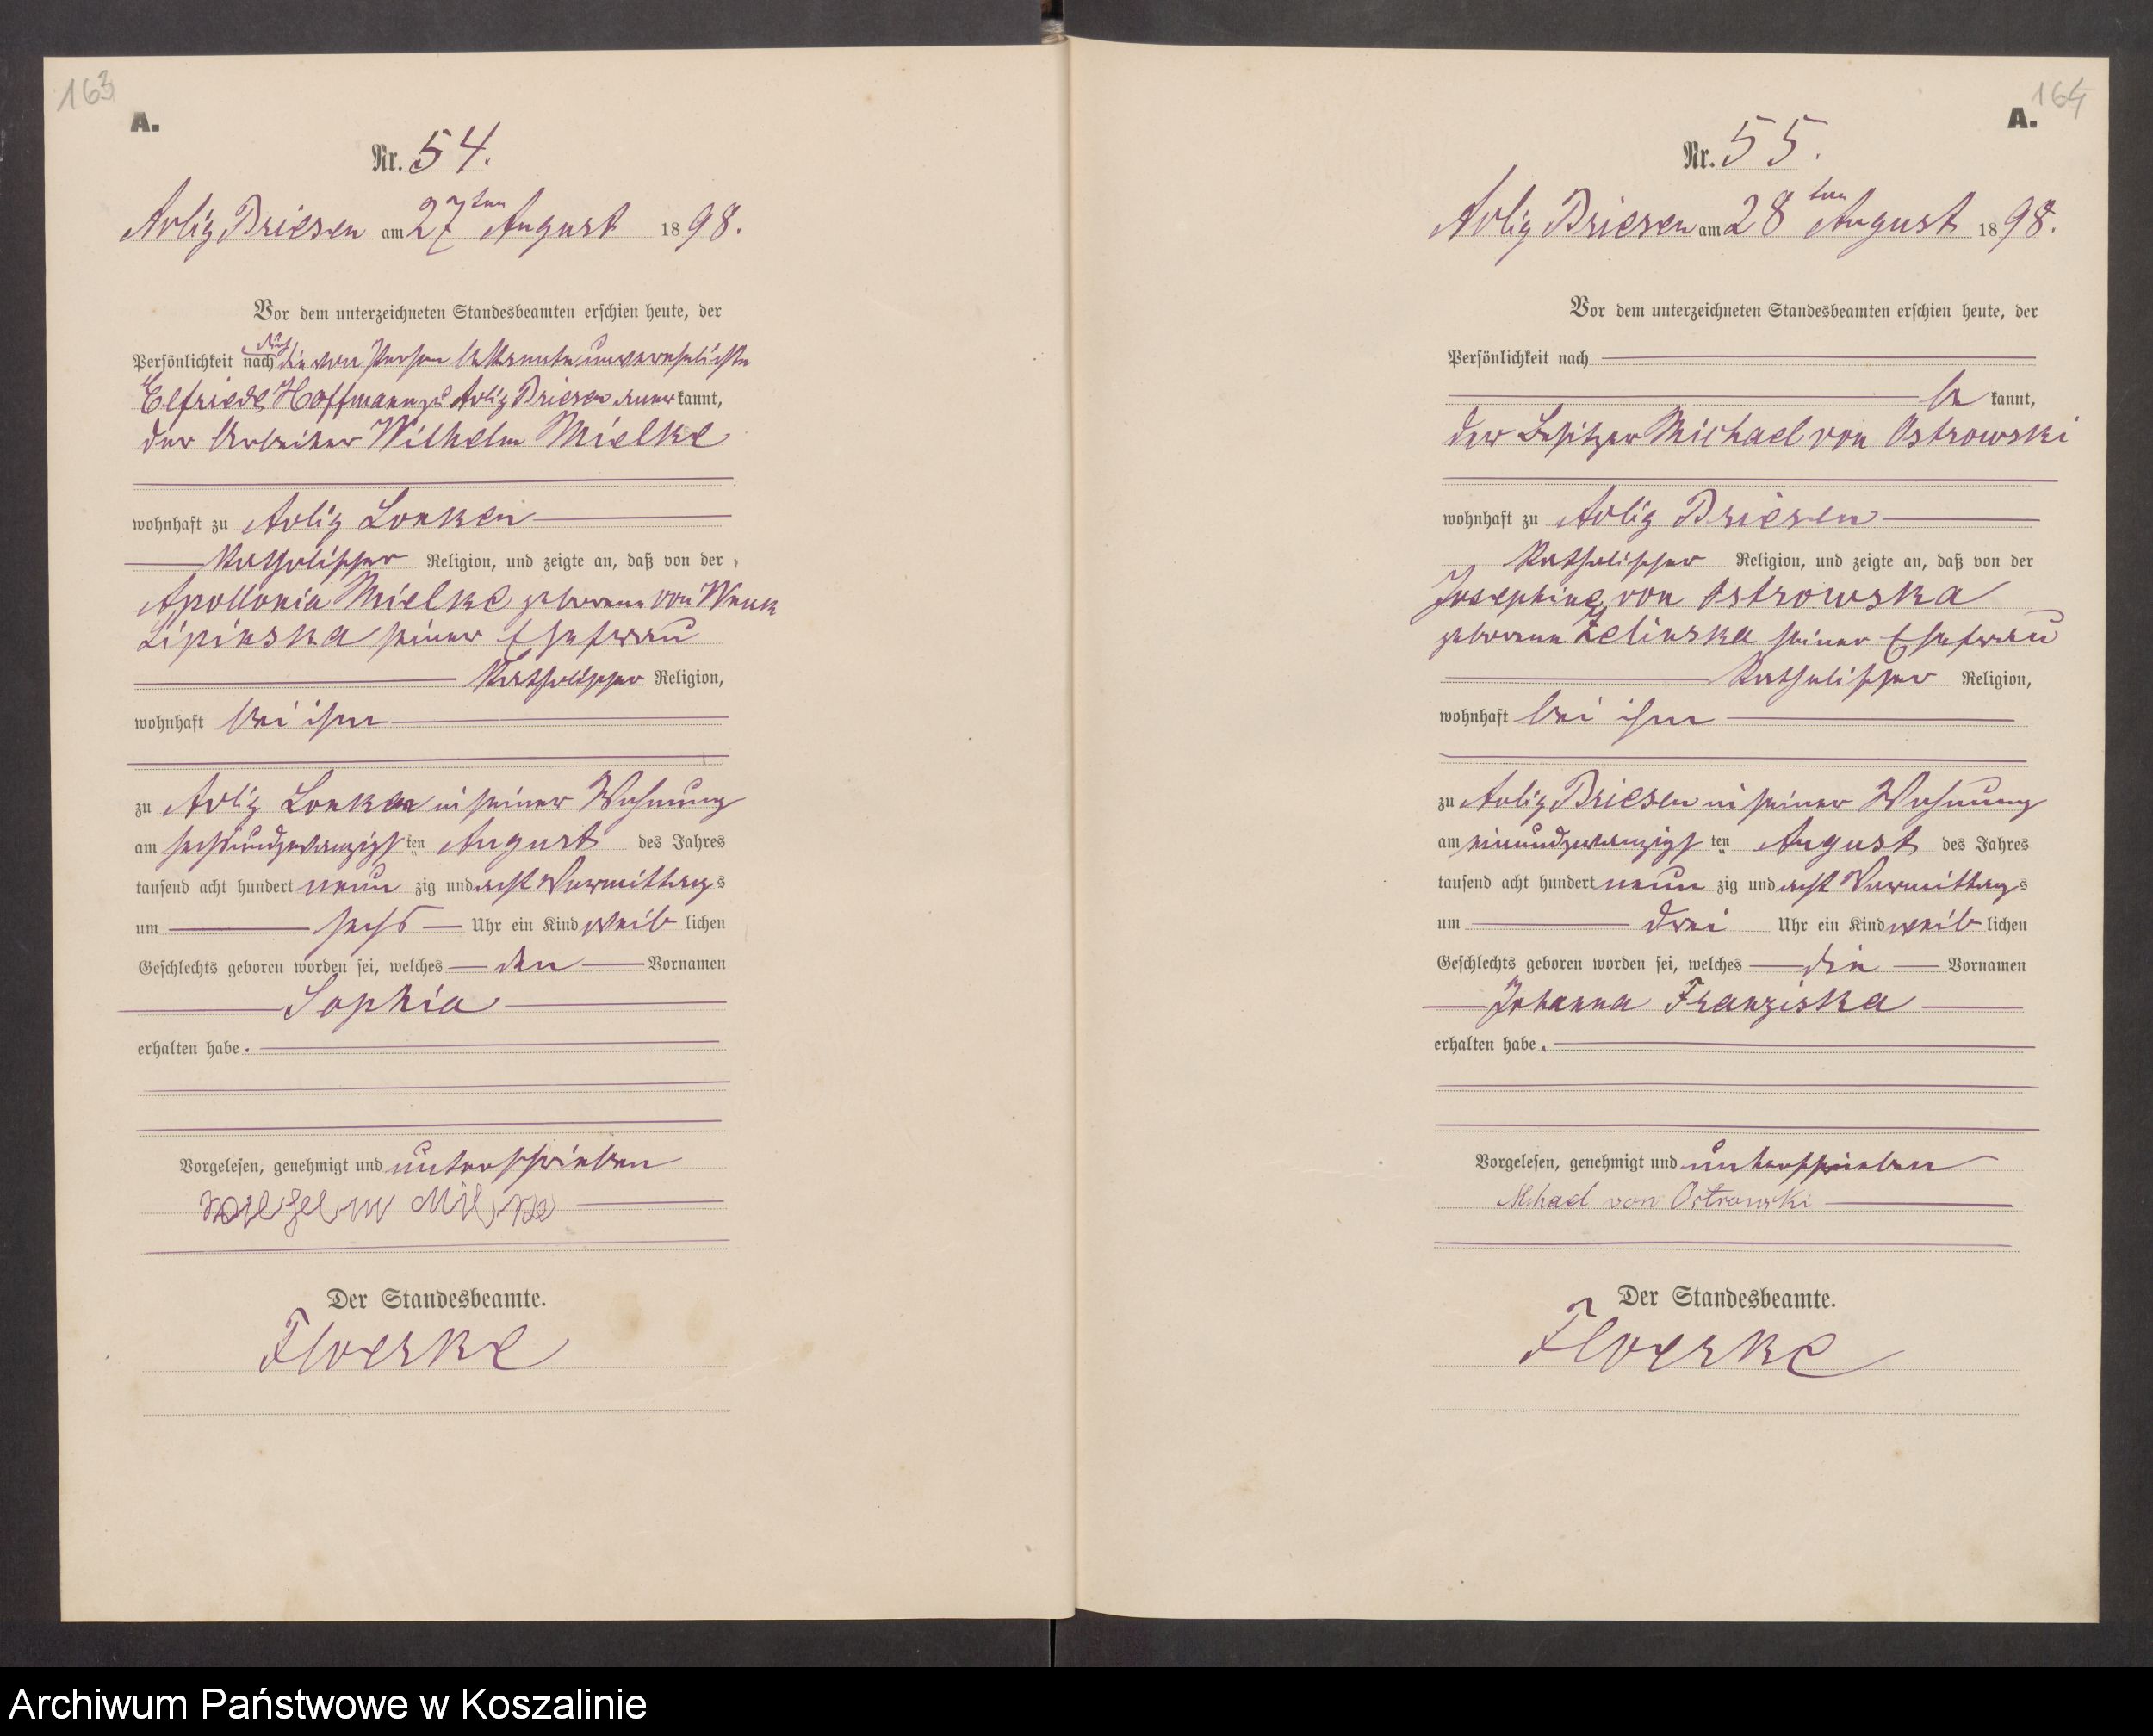 163
A.
Nr. 54.
Adlig Briesen am 27ten August 1898.
Vor dem unterzeichneten Standesbeamten erschien heute, der
durch
Persönlichkeit nach die von Person bekannte unverehelichte
Elfriede Hoffmann zu Adlig Briesen anerkannt,
der Arbeiter Wilhelm Mielke
wohnhaft zu Adlig Lonken
katholischer Religion, und zeigte an, daß von der
Apollonia Mielke geborene von Wnuk
Lipinska seiner Ehefrau
katholischer Religion,
wohnhaft bei ihm
zu Adlig Lonken in seiner Wohnung
am sechsundzwanzigsten August des Jahres
tausend acht hundert neunzig und acht Vormittags
um sechs Uhr ein Kind weiblichen
Geschlechts geboren worden sei, welches den Vornamen
Sophia
erhalten habe.
Vorgelesen, genehmigt und unterschrieben
Wilhelm Milke
Der Standesbeamte.
Floerke
164
A.
Nr. 55.
Adlig Briesen am 28ten August 1898.
Vor dem unterzeichneten Standesbeamten erschien heute, der
Persönlichkeit nach
bekannt,
der Besitzer Michael von Ostrowski
wohnhaft zu Adlig Briesen
katholischer Religion, und zeigte an, daß von der
Josephine von Ostrowska
geborene Zelinska seiner Ehefrau
katholischer Religion,
wohnhaft bei ihm
zu Adlig Briesen in seiner Wohnung
am einundzwanzigsten August des Jahres
tausend acht hundert neunzig und acht Vormittags
um drei Uhr ein Kind weiblichen
Geschlechts geboren worden sei, welches die Vornamen
Johanna Franziska
erhalten habe.
Vorgelesen, genehmigt und unterschrieben
Mihael von Ostrowski
Der Standesbeamte.
Floerke
Archiwum Państwowe w Koszalinie